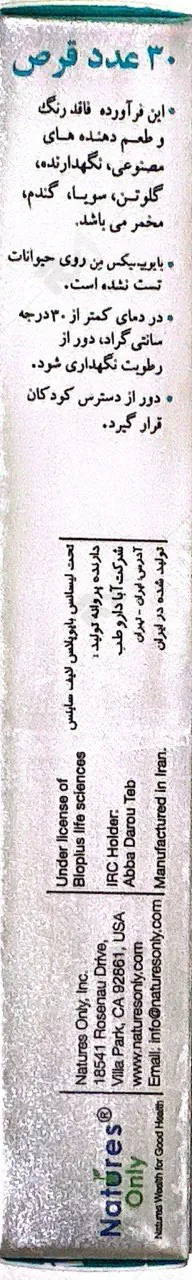 ۳۰ عدد قرص
• این فرآورده فاقد رنگ
و طعم دهنده های
مصنوعی، نگهدارنده،
گلوتن، سویا، گندم،
مخمر می باشد.
• بایومیکس من روی حیوانات
تست نشده است.
• در دمای کمتر از ۳۰ درجه
سانتی گراد، دور از
رطوبت نگهداری شود.
• دور از دسترس کودکان
قرار گیرد.
تحت لیسانس بایوپلاس لایف ساینس
دارنده پروانه تولید:
شرکت آبا دارو طب
آدرس: ایران - تهران
تولید شده در ایران
Under license of
Bioplus life sciences
IRC Holder:
Abba Darou Teb
Manufactured in Iran.
Natures Only, Inc.
18541 Rosenau Drive,
Villa Park, CA 92861, USA
www.naturesonly.com
Email: info@naturesonly.com
Natures®
Only
Natures Wealth for Good Health